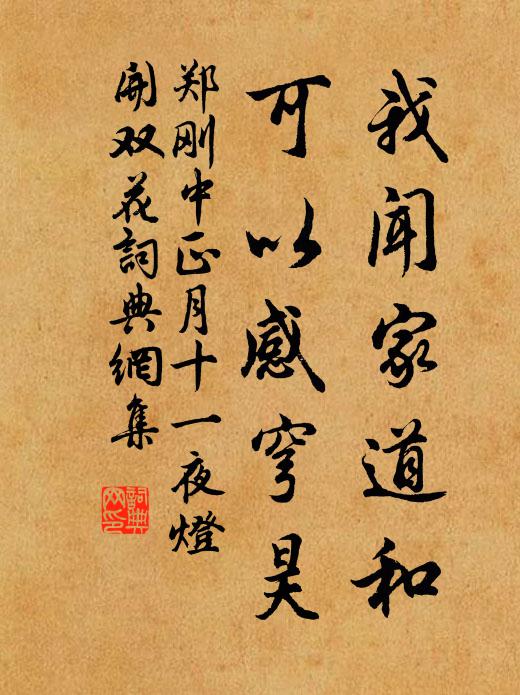 我闻家道和
可以感穹昊
郑刚中正月十一夜燈
開双花詞典網集
詞典网印